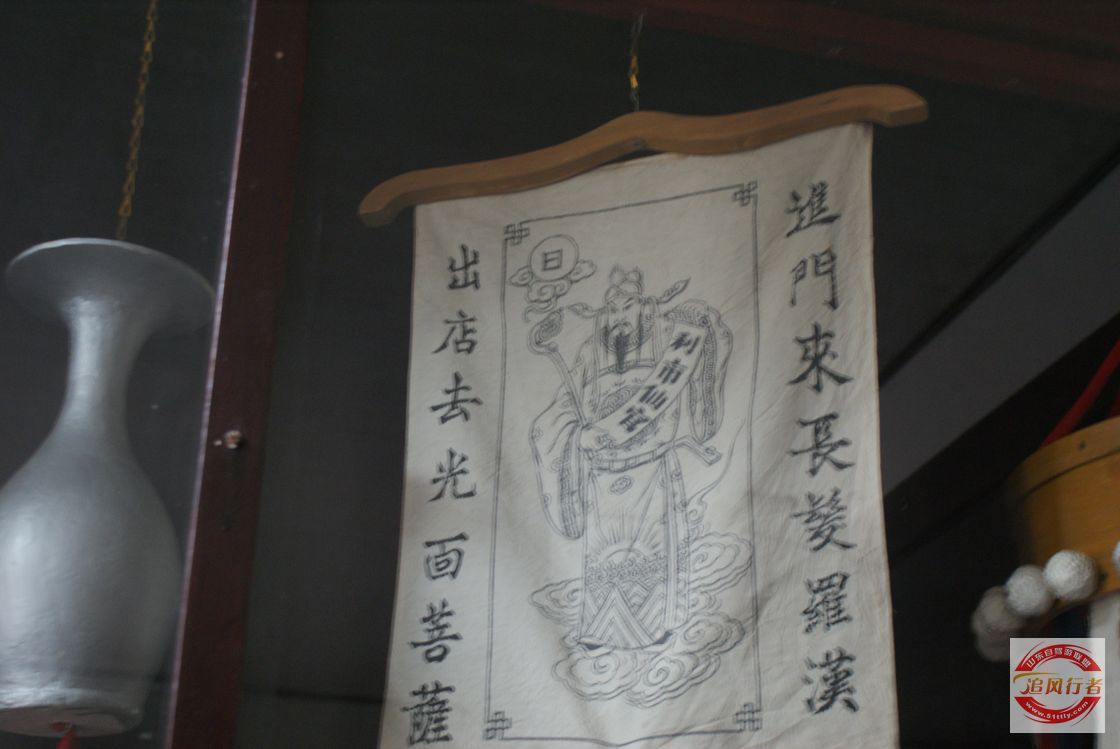 進門來長髮羅漢
出店去光面菩薩
日
利市仙官
山东自驾游联盟
追风行者
www.51ttly.com